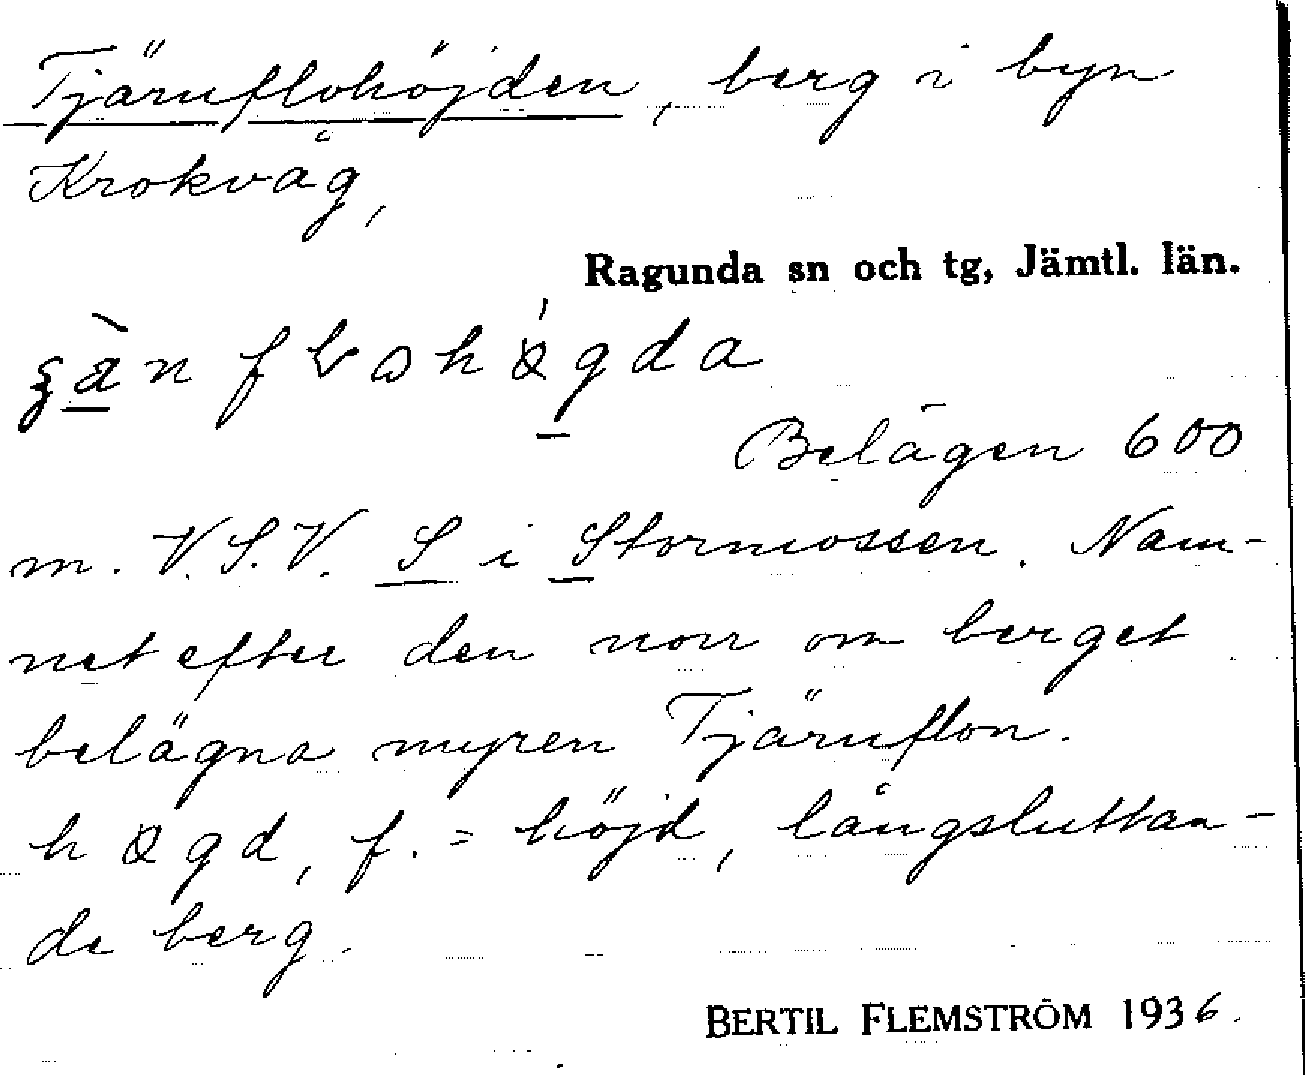 Tjärnflohöjden, berg i byn
Krokvåg,
Ragunda sn och tg, Jämtl. län.
Belägen 600
m. V.S.V. S i Stormossen. Nam-
net efter den norr om berget
belägna myren Tjärnflon.
høgd, f. = höjd, långsluttan-
de berg.
BERTIL FLEMSTRÖM 1936.